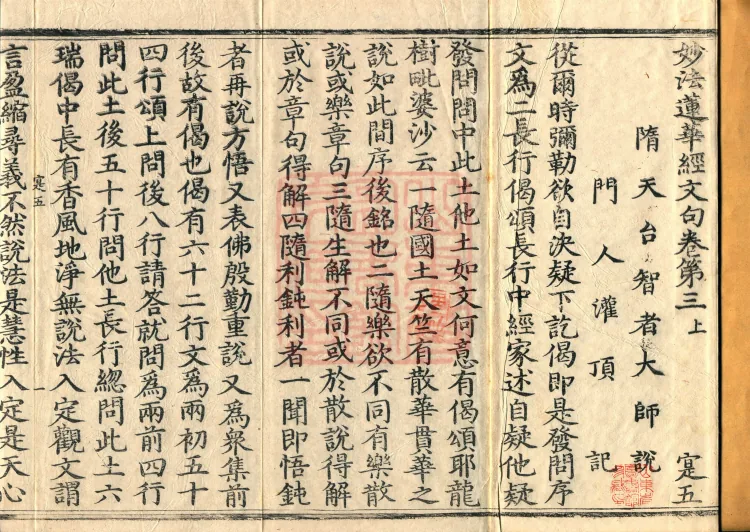 妙法蓮華經文句卷第三上 寔五
隋天台智者大師說
門人灌頂記
從爾時彌勒欲自決疑下訖偈即是發問序
文爲二長行偈頌長行中經家述自疑他疑
發問問中此土他土如文何意有偈頌耶龍
樹毗婆沙云一隨國土天竺有散華貫華之
說如此間序後銘也二隨樂欲不同有樂散
說或樂章句三隨生解不同或於散說得解
或於章句得解四隨利鈍利者一聞即悟鈍
者再說方悟又表佛殷勤重說又爲衆集前
後故有偈也偈有六十二行文爲兩初五十
四行頌上問後八行請答就問爲兩前四行
問此土後五十行問他土長行總問此土六
瑞偈中長有香風地淨無說法入定觀文謂
寔五 一
言盈縮尋義不然說法是慧性入定是天心